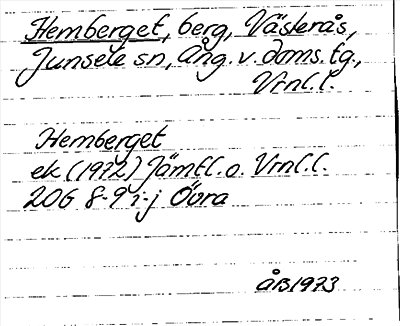 Hemberget, berg, Västerås,
Junsele sn, Ång. v. doms. tg.,
Vrnl. l.
Hemberget
ek (1972) Jämtl. o. Vrnl. l.
20G 8-9 i-j Övra
ÅB 1973